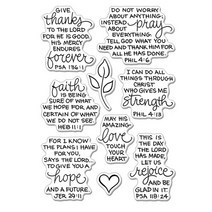 GIVE
thanks
TO THE LORD
FOR HE IS GOOD.
HIS MERCY
ENDURES
forever
PSA 136:1
DO NOT WORRY
ABOUT ANYTHING;
INSTEAD pray ABOUT
EVERYTHING.
TELL GOD WHAT YOU
NEED AND THANK HIM FOR
ALL HE HAS DONE.
PHIL 4:6
faith
IS BEING
SURE OF WHAT
WE HOPE FOR AND
CERTAIN OF WHAT
WE DO NOT SEE.
HEB 11:1
I CAN DO ALL
THINGS THROUGH
CHRIST
WHO GIVES ME
strength
PHIL 4:13
MAY HIS
AMAZING
love
TOUCH
YOUR
HEART
FOR I KNOW
THE PLANS I HAVE
FOR YOU,
SAYS THE LORD...
TO GIVE YOU A
hope
AND A FUTURE.
JER 29:11
THIS IS
THE DAY
THE LORD
HAS MADE.
LET US
rejoice
AND BE
GLAD IN IT.
PSA 118:24